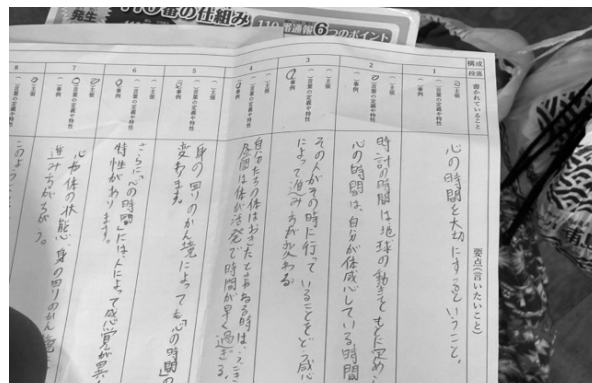 発生
110番の仕組み
110番通報6つのポイント
構成
段落
書かれていること
要点(言いたいこと)
1
( )主張
( )言葉の定義や特性
( )事例
心の時間を大切にするということ。
2
( )主張
( )言葉の定義や特性
( )事例
時計の時間は地球の動きをもとに定め
心の時間は、自分が体感している時間
3
( )主張
( )言葉の定義や特性
( )事例
その人がその時に行っていることをど
によって進み方が変わる
4
( )主張
( )言葉の定義や特性
( )事例
自分たちの体はおきたときとねる時は
昼間は体が活発で時間が早く過ぎる。
5
( )主張
( )言葉の定義や特性
( )事例
身の回りのかん境によっても「心の時間」の
変わります。
6
( )主張
( )言葉の定義や特性
( )事例
さらに「心の時間」には、人によって感覚が異
特性があります。
7
( )主張
( )言葉の定義や特性
( )事例
心や体の状態、身の回りのかん境
進み方がちがう。
8
( )主張
( )言葉の定義や特性
( )事例
このように